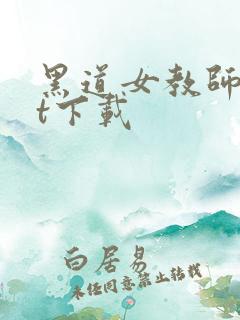 黑道女教師
t下載
白居易
未經同意禁止轉載